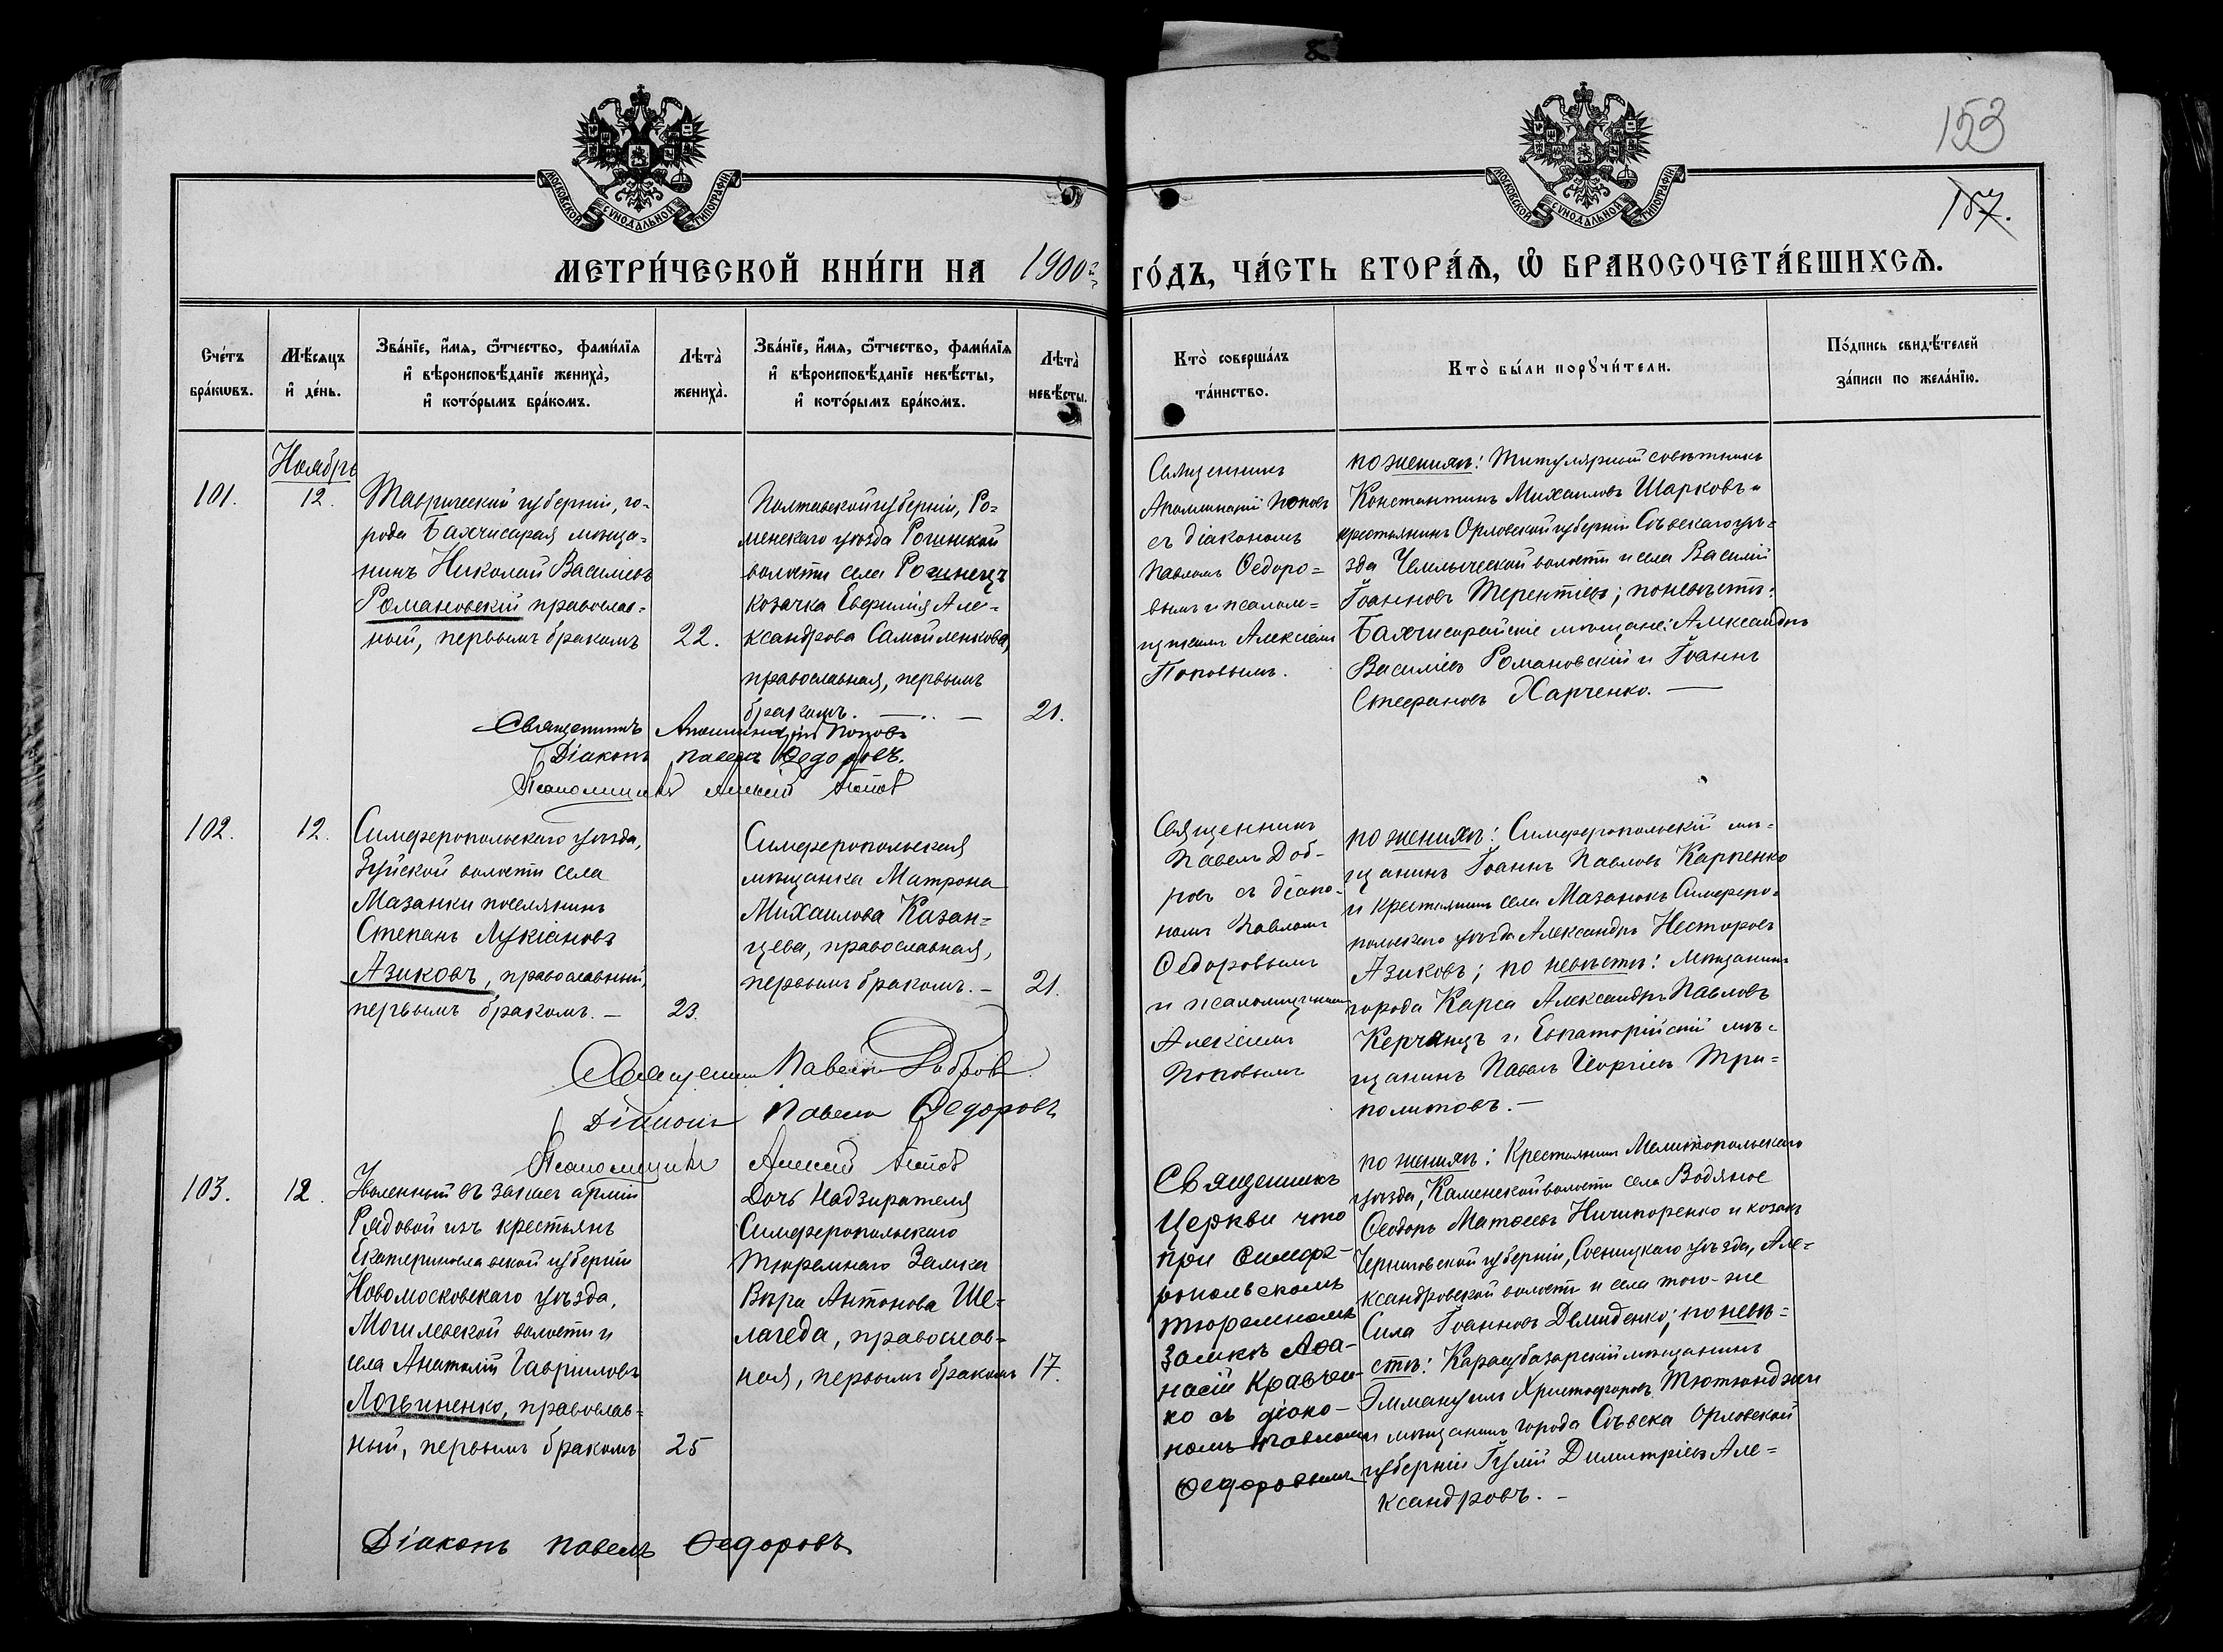 153
187.
МОСКОВСКОЙ СѴНОДАЛЬНОЙ ТИПОГРАФІИ
МОСКОВСКОЙ СѴНОДАЛЬНОЙ ТИПОГРАФІИ
МЕТРИ́ЧЕСКОЙ КНИ́ГИ НА 1900й ГО́ДЪ, ЧА́СТЬ ВТОРА́Ѧ, Ѡ҆ БРАКОСОЧЕТА́ВШИХСѦ.
Сче́тъ
бра́кѡвъ.
Мѣ́сѧцъ
и҆ де́нь.
Зва́нїе, и҆́мѧ, ѻ҆́тчество, фами́лїѧ
и҆ вѣроисповѣ́данїе жениха̀,
и҆ кото́рымъ бра́комъ.
Лѣта̀
жениха̀.
Зва́нїе, и҆́мѧ, ѻ҆́тчество, фами́лїѧ
и҆ вѣроисповѣ́данїе невѣ́сты,
и҆ кото́рымъ бра́комъ.
Лѣта̀
невѣ́сты.
Кто̀ соверша́лъ
та́инство.
Кто̀ бы́ли порꙋчи́тели.
По́дпись свидѣ́телей
за́писи по жела́нїю.
Ноябрь
101.
12.
Таврической губерніи, го-
рода Бахчисарая мѣща-
нинъ Николай Василіевъ
Романовскій православ-
ный, первымъ бракомъ
22.
Полтавской губерніи, Ро-
менскаго уѣзда Рогинской
волости села Рогинецъ
козачка Евфимія Але-
ксандрова Самойленкова,
православная, первымъ
бракомъ.
21.
Священникъ
Аполлинарій Поповъ
съ діакономъ
Павломъ Ѳедоро-
вымъ и псалом-
щикомъ Алексіемъ
Поповымъ.
по женихѣ: Титулярный совѣтникъ
Константинъ Михаиловъ Шарковъ и
крестьянинъ Орловской губерніи Сѣвскаго уѣ-
зда Чемлыческой волости и села Василій
Іоанновъ Терентіевъ; по невѣстѣ:
Бахчисарайскіе мѣщане: Александръ
Василіевъ Романовскій и Іоаннъ
Стефановъ Харченко.
Священникъ Аполлинарій Поповъ
Діаконъ Павелъ Ѳедоровъ.
Псаломщикъ Алексій Попов
102.
12.
Симферопольскаго уѣзда,
Зуйской волости села
Мазанки поселянинъ
Степанъ Лукіановъ
Азиковъ, православный,
первымъ бракомъ.
23.
Симферопольская
мѣщанка Матрона
Михаилова Казан-
цева, православная,
первымъ бракомъ.
21.
Священникъ
Павелъ Доб-
ровъ съ діако-
номъ Павломъ
Ѳедоровымъ
и псаломщикомъ
Алексіемъ
Поповымъ
по женихѣ: Симферопольскій мѣ-
щанинъ Іоаннъ Павловъ Карпенко
и крестьянинъ села Мазанокъ Симферо-
польскаго уѣзда Александръ Несторовъ
Азиковъ; по невѣстѣ: мѣщанинъ
города Карса Александръ Павловъ
Керчанцъ и Евпаторійскій мѣ-
щанинъ Павелъ Георгіевъ Три-
политовъ.
Священникъ Павелъ Добров
Діаконъ Павелъ Ѳедоровъ
Псаломщикъ Алексій Попов
103.
12.
Уволенный въ запасъ арміи
Рядовой изъ крестьянъ
Екатеринославской губерніи
Новомосковскаго уѣзда,
Могилевской волости и
села Анатолій Гавріиловъ
Логвиненко, православ-
ный, первымъ бракомъ
25
Дочь Надзирателя
Симферопольскаго
Тюремнаго Замка
Вѣра Антонова Ше-
лагеда, православ-
ная, первымъ бракомъ
17.
Священникъ
Церкви что
при Симфе-
ропольскомъ
тюремномъ
замкѣ Аѳа-
насій Кравчен-
ко съ діако-
номъ Павломъ
Ѳедоровымъ
по женихѣ: Крестьянинъ Мелитопольскаго
уѣзда, Каменской волости села Водяное
Ѳеодоръ Матѳеевъ Ничипоренко и козакъ
Черниговской губерніи, Сосницкаго уѣзда, Але-
ксандровской волости и села того-же
Сила Іоанновъ Демиденко; по невѣ-
стѣ: Карасубазарскій мѣщанинъ
Эммануилъ Христофоровъ Тютюнджи
и мѣщанинъ города Сѣвска Орловской
губерніи Іулій Димитріевъ Але-
ксандровъ.
Діаконъ Павелъ Ѳедоровъ